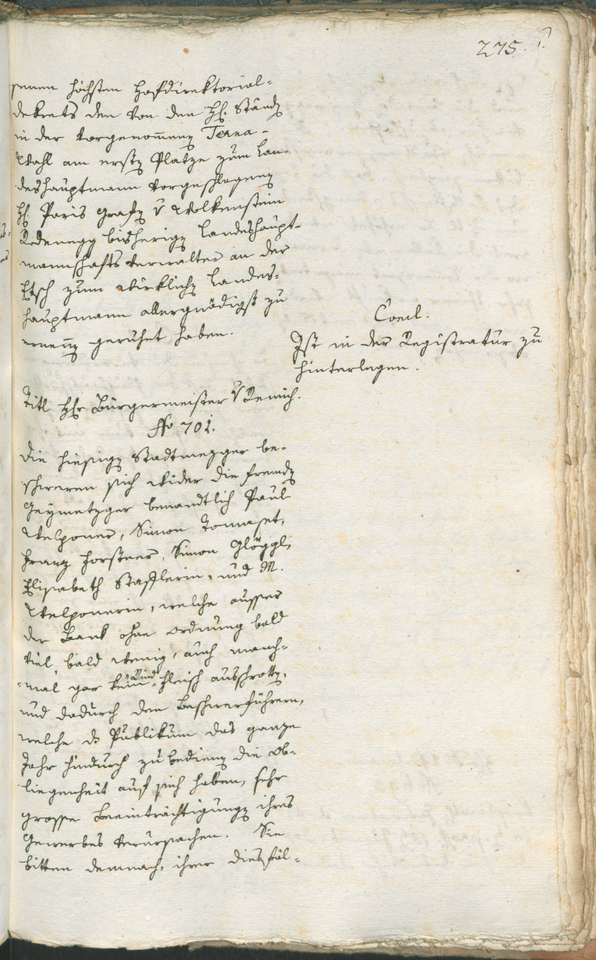 275.
senen höchsten Hofdirektorial-
dekrets den von den H. Ständ
in der vorgenommenen Terna-
Wahl am ersten Platze zum Lan-
deshauptmann vorgeschlagenen
H. Paris Grafen v Wolkenstein
Rodenegg bisherigen Landshaupt-
mannschafts verwalter an der
Etsch zum wirklichen Landes-
hauptmann allergnädigst zu
ernennen geruhet haben.
Concl.
Ist in der Registratur zu
hinterlegen.
Titl H. Bürgermeister v
No 701.
Die hiesigen Stadtmezger be-
schweren sich wider die fremden
Geymetzger benandtlich Paul
Welponer, Simon Tomaset,
Franz Forstner, Simon Glöggl,
Elisabeth Stafflerin, und M.
Welponerin, welche ausser
der Bank ohne Ordnung bald
viel, bald wenig, auch manch-
mal gar kein Rindfleisch ausschroten,
und dadurch den Beschwerführern,
welche ds Publikum das ganze
Jahr hindurch zu bedienen die Ob-
liegenheit auf sich haben, sehr
grosse Beeinträchtigungen ihres
Gewerbes verursachen. Sie
bitten demnach, ihrer diesfäl-